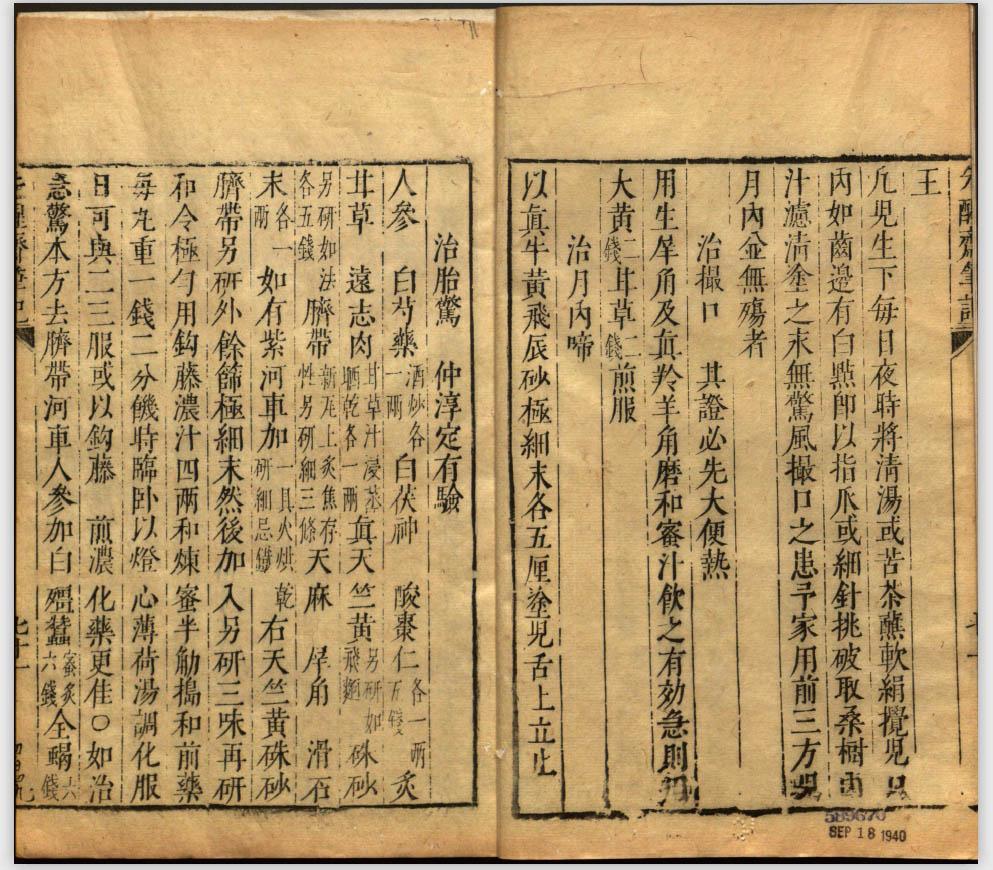 王
凢児生下每日夜時將清湯或苦茶蘸軟絹攪児口
內如齒邊有白㸃即以指爪或細針挑破取桑樹
汁濾清塗之永無驚風撮口之患予家用前三方
月內並無殤者
治撮口　其證必先大便熱
用生犀角及眞羚羊角磨和蜜汁飲之有効急則
大黄二錢甘草二錢煎服
治月內啼
以眞牛黃飛辰砂極細末各五厘塗児舌上立止
治胎驚　仲淳定有驗
人參　白芍藥酒炒各一兩　白茯神　酸棗仁各一兩五錢　炙
甘草　遠志肉甘草汁浸蒸晒乾各一兩　眞天竺黃另研如飛麵　硃砂
另研如法各五錢　臍帶新瓦上炙焦存性另研細三條　天麻　犀角　滑石
末各一兩　如有紫河車加一具火烘乾研細忌鐵　右天竺黃硃砂
臍帶另研外餘篩極細末然後加入另研三味再研
和令極勻用鈎藤濃汁四兩和煉蜜半觔搗和前藥
每丸重一錢二分饑時臨卧以燈心薄荷湯調化服
日可與二三服或以鈎藤　煎濃化藥更佳○如治
急驚本方去臍帶河車人參加白殭蠶蜜炙六錢全蝎六錢
589670
SEP 18 1940